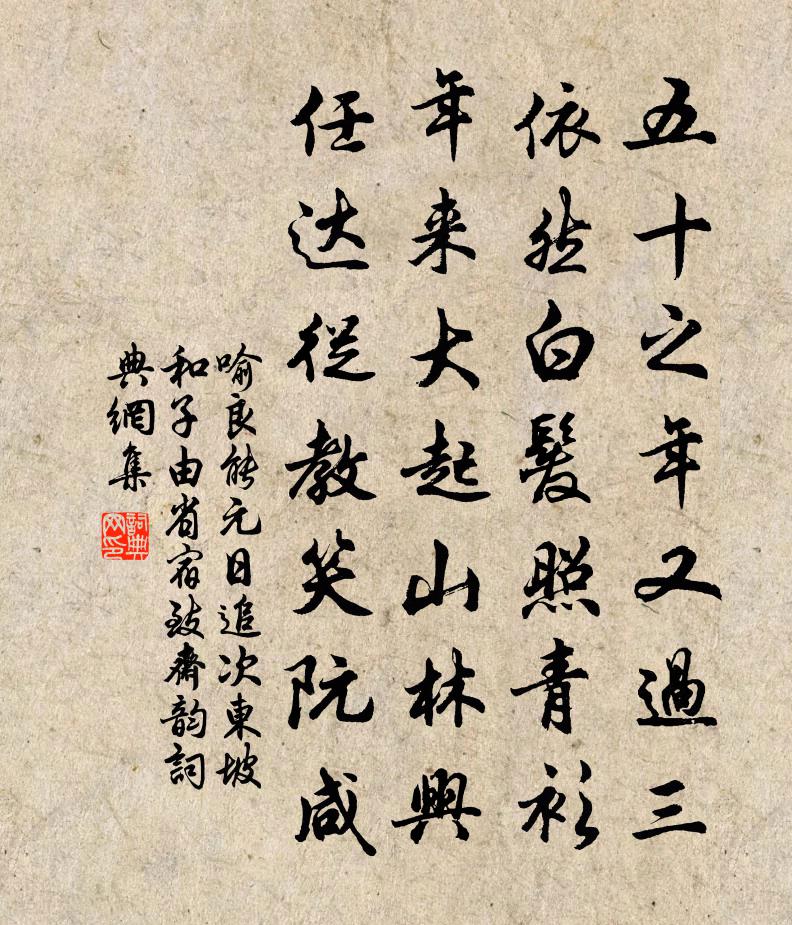 五十之年又過三
依然白髮照青衫
年来大起山林興
任达從教笑阮咸
喻良能元日追次東坡
和子由省宿致齋韵詞
典網集
詞典网印